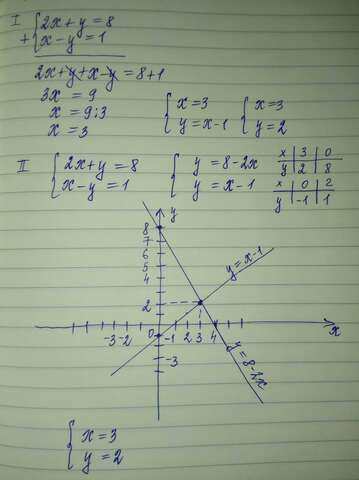 I {2x+y=8
+ {x-y=1
2x+y+x-y=8+1
3x = 9
x = 9:3
x = 3
{x=3
y=x-1
{x=3
y=2
II {2x+y=8
x-y=1
{y=8-2x
y=x-1
x | 3 | 0
y | 2 | 8
x | 0 | 2
y | -1 | 1
y
8
7
6
5
4
2
y=x-1
-3 -2 0 -1 2 3 4 x
-3
y=8-2x
{x=3
y=2